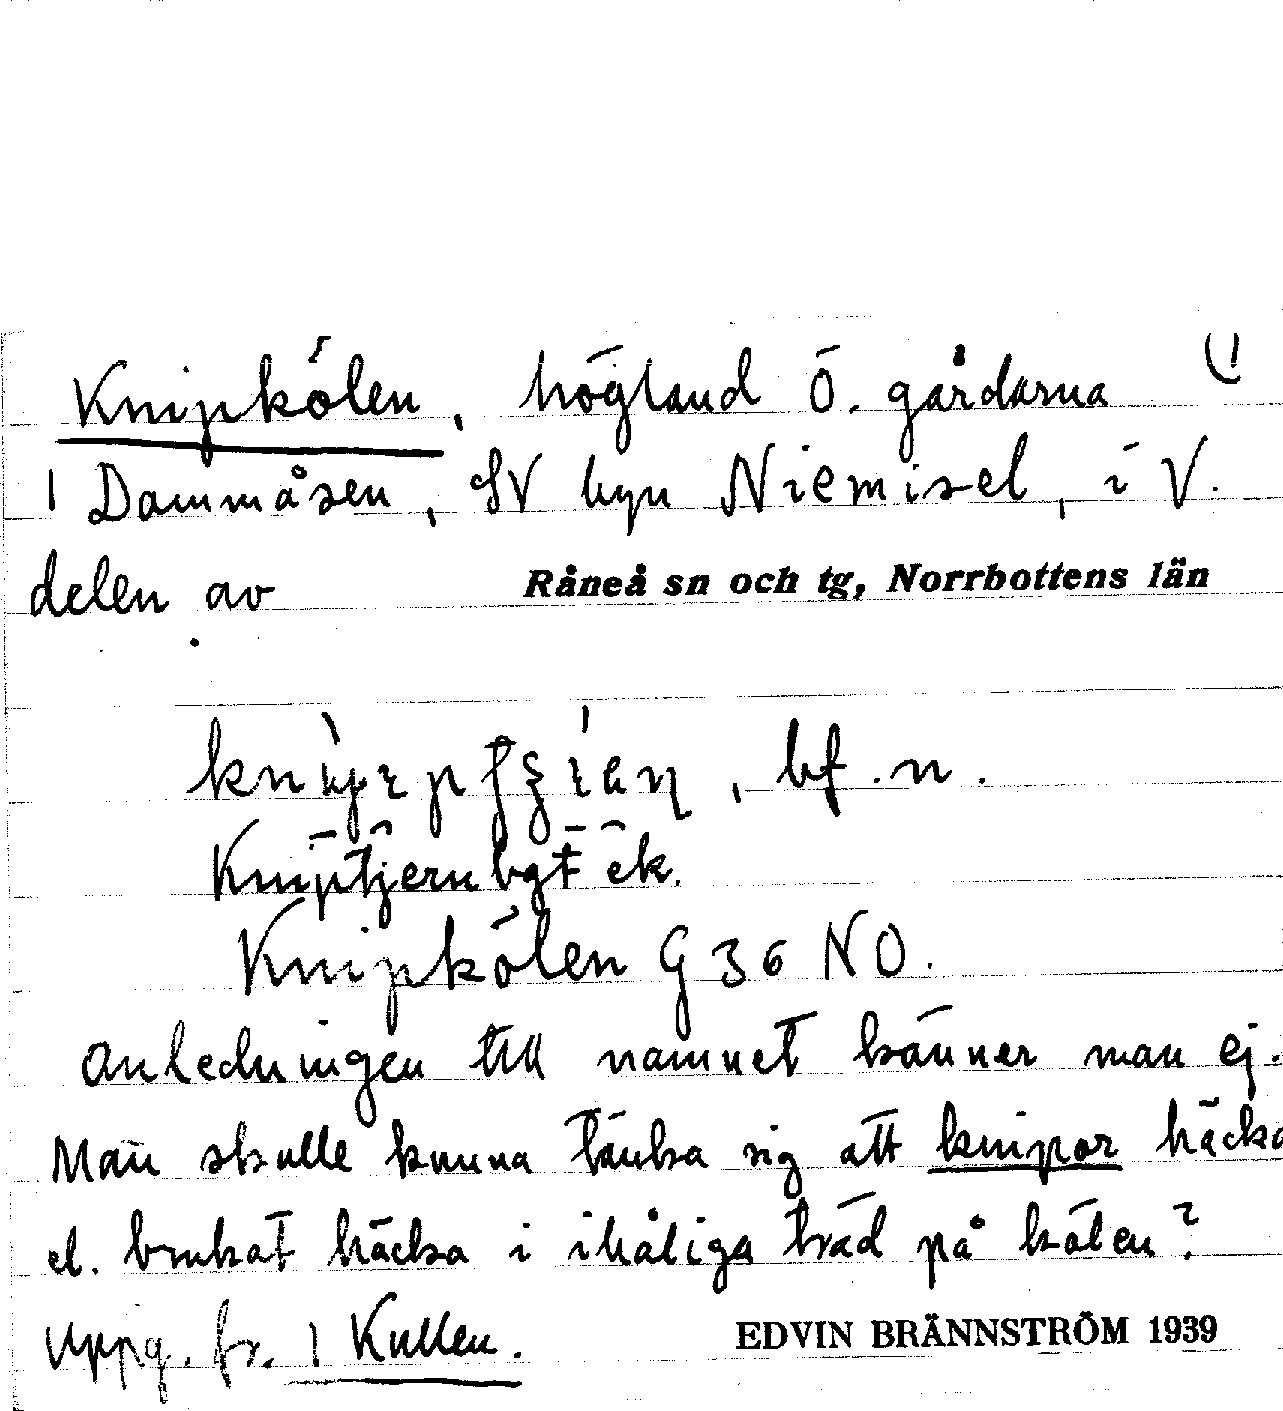 Knipkölen, högland Ö. gårdarna (1
1 Dammåsen, SV byn Niemisel, i V.
delen av Råneå sn och tg, Norrbottens län
bf. n.
Kniptjern bgt ek.
Knipkölen G 36 NO.
Anledningen till namnet känner man ej.
Man skulle kunna tänka sig att knipor häcka
el. brukat häcka i ihåliga träd på kölen?
Uppg. fr. 1 Kullen. EDVIN BRÄNNSTRÖM 1939